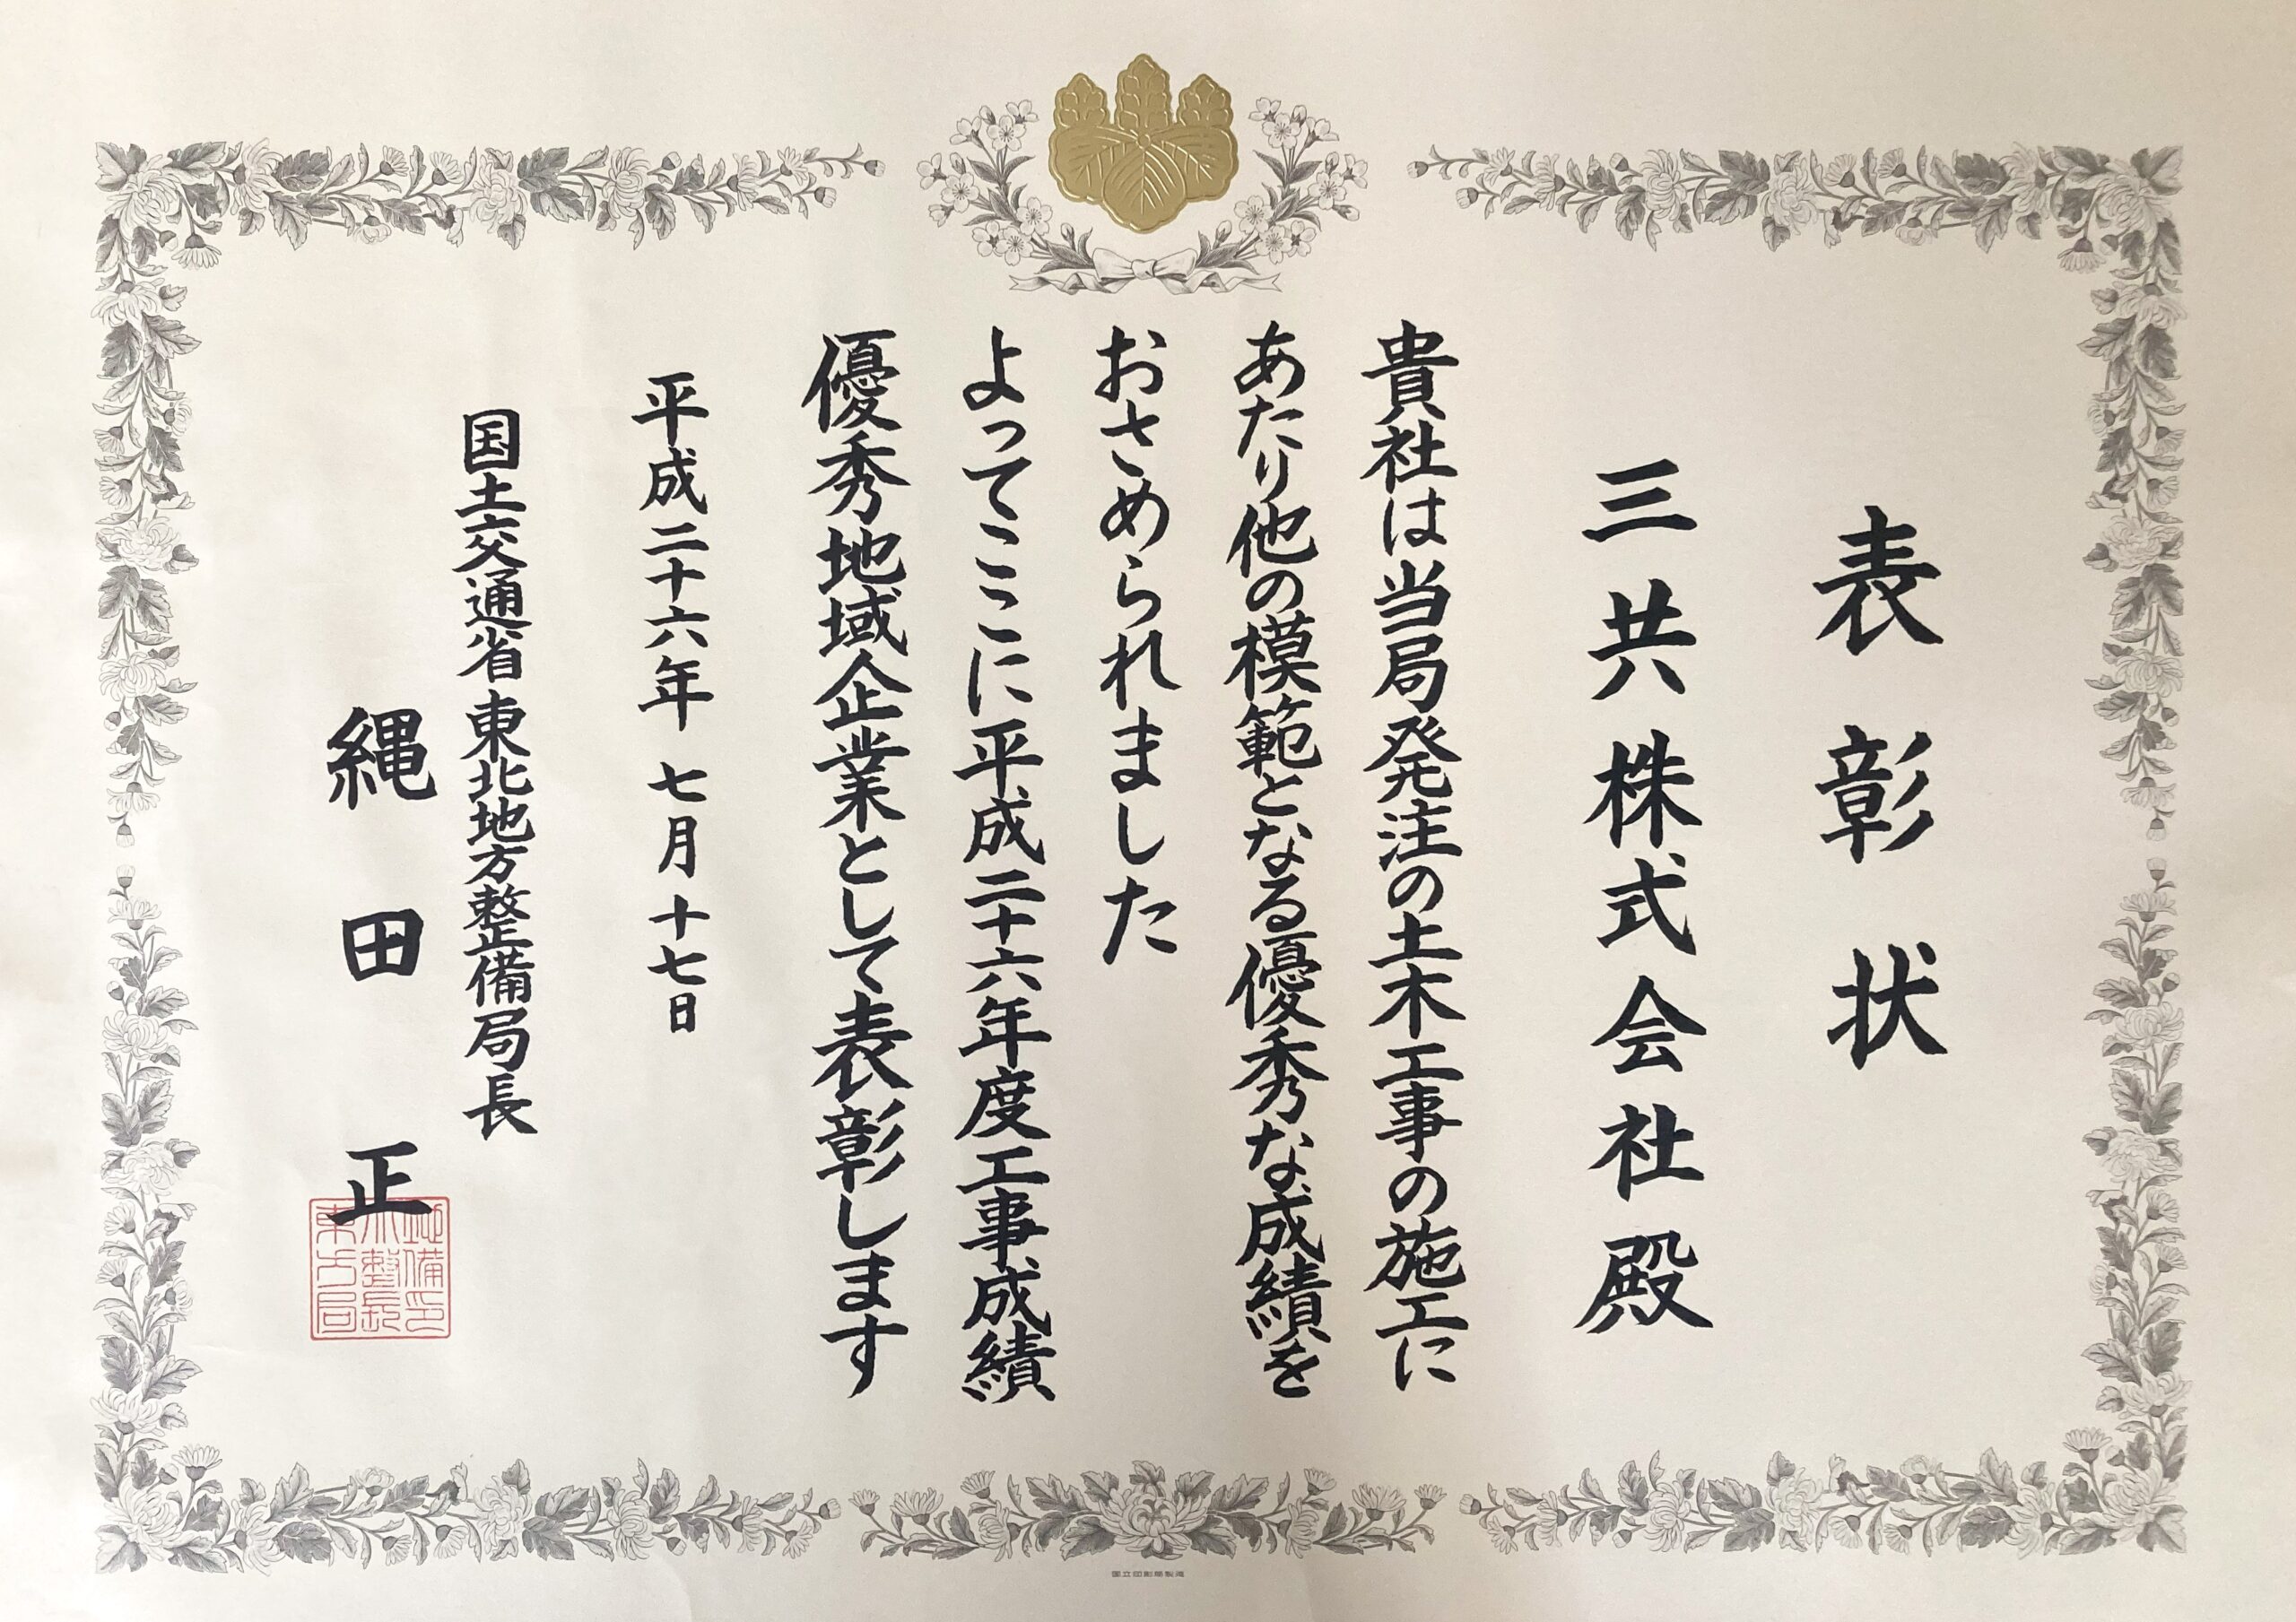 表彰状
三共株式会社殿
貴社は当局発注の土木工事の施工に
あたり他の模範となる優秀な成績を
おさめられました
よってここに平成二十六年度工事成績
優秀地域企業として表彰します
平成二十六年 七月 十七日
国土交通省 東北地方整備局長
縄田正
国立印刷局製造